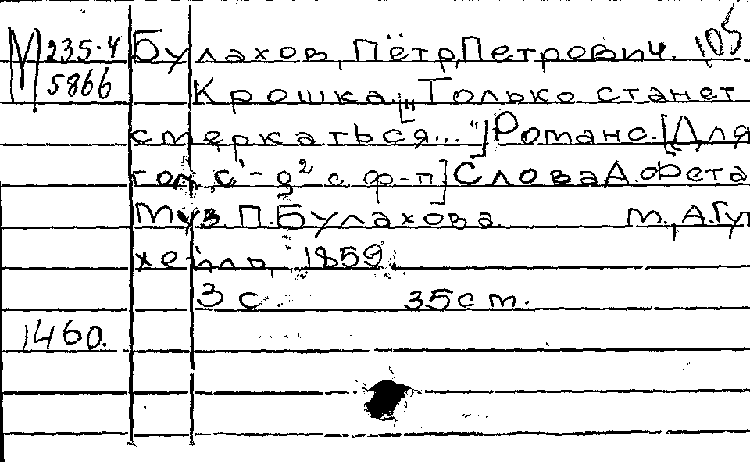 М 235-4 Булахов, Пётр Петрович. 105
5866 Крошка. ["Только станет
смеркаться..."] Романс. [Для
гол. с¹-g² с ф-п] Слова А. Фета
Муз. П. Булахова. М., А. Гут
хейль, 1859.
3 с. 35 см.
1460.